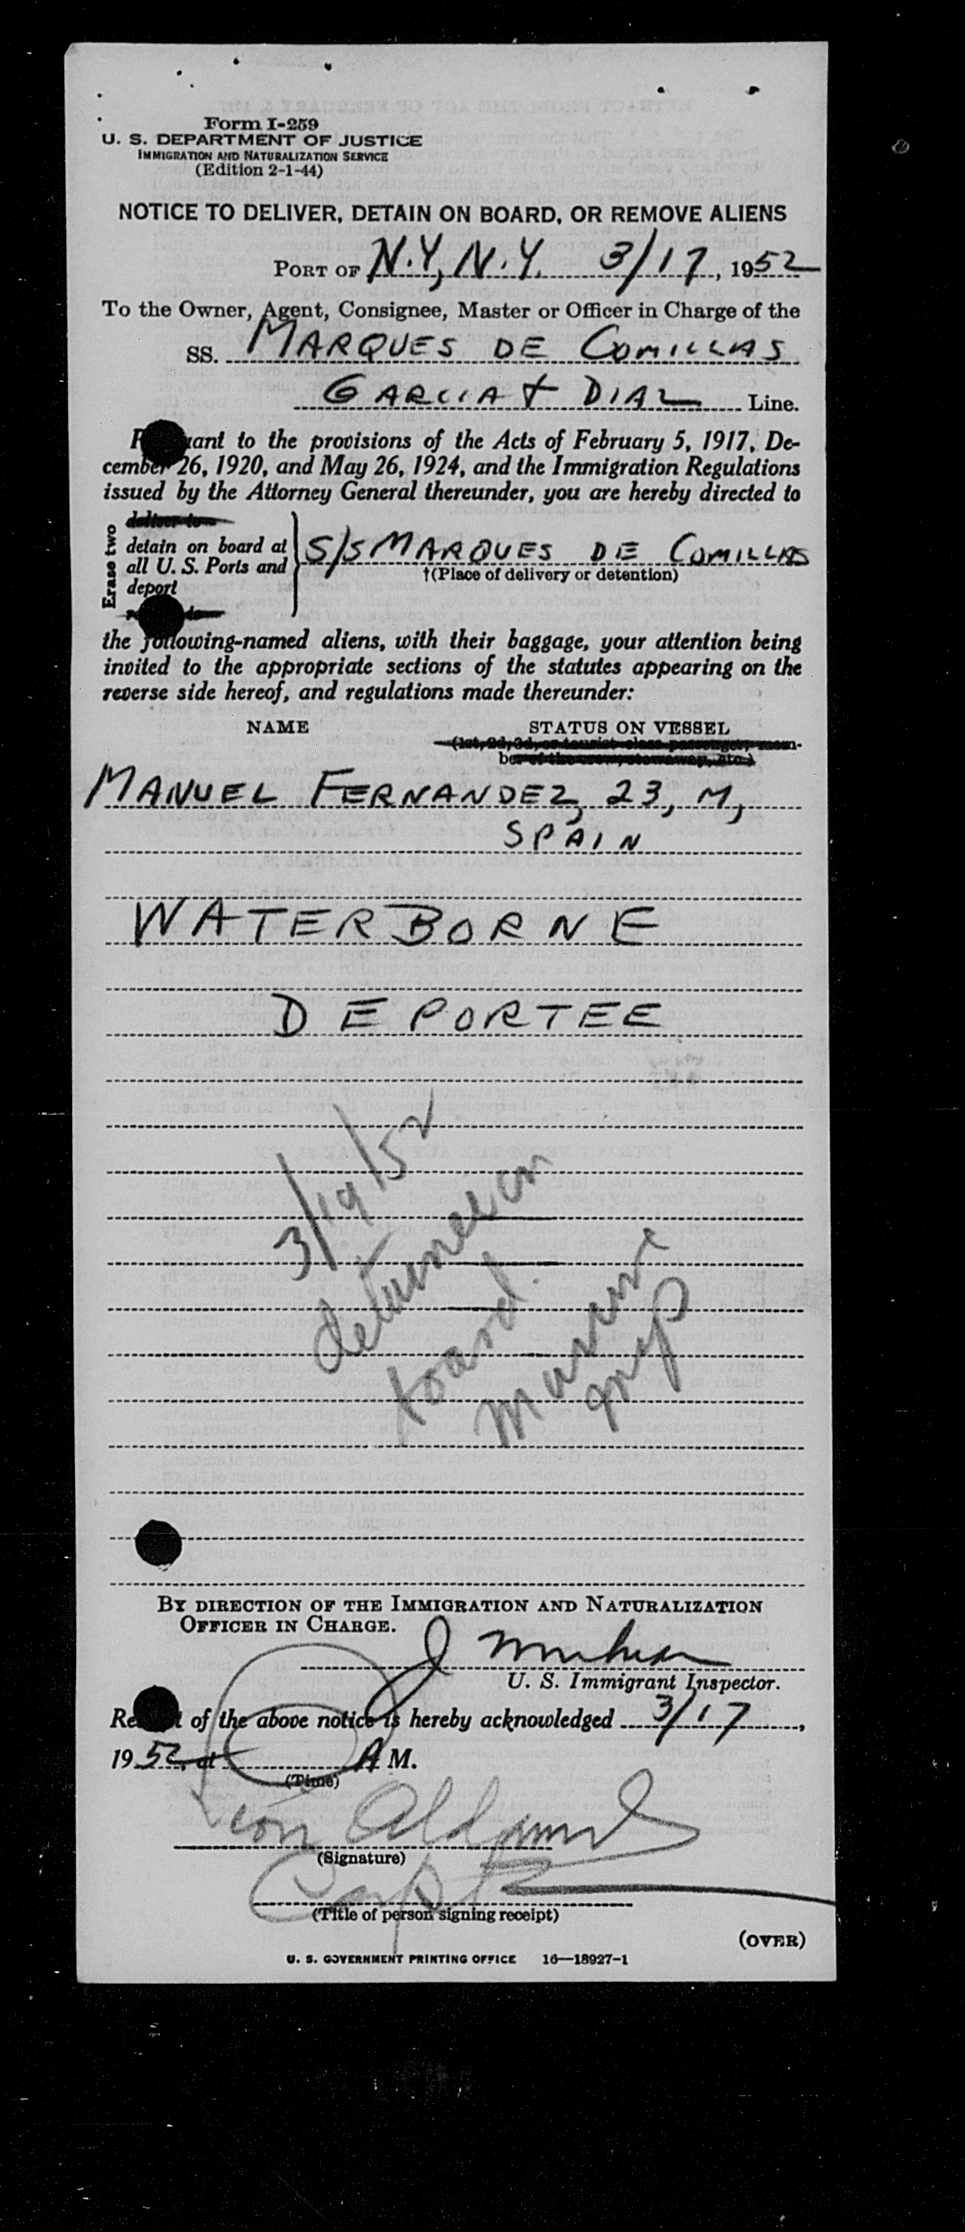 Form I-259
U. S. DEPARTMENT OF JUSTICE
IMMIGRATION AND NATURALIZATION SERVICE
(Edition 2-1-44)
NOTICE TO DELIVER, DETAIN ON BOARD, OR REMOVE ALIENS
PORT OF N.Y., N.Y. 3/17, 1952
To the Owner, Agent, Consignee, Master or Officer in Charge of the
SS. MARQUES DE COMILLAS
GARCIA + DIAZ Line.
to the provisions of the Acts of February 5, 1917, De-
cember 26, 1920, and May 26, 1924, and the Immigration Regulations
issued by the Attorney General thereunder, you are hereby directed to
Erase two
deliver to
detain on board at
all U. S. Ports and
deport
S/S MARQUES DE COMILLAS
†(Place of delivery or detention)
the following-named aliens, with their baggage, your attention being
invited to the appropriate sections of the statutes appearing on the
reverse side hereof, and regulations made thereunder:
NAME STATUS ON VESSEL
(1st, 2d, 3d, or tourist class passenger, mem-
ber of the crew, stowaway, etc.)
MANUEL FERNANDEZ, 23, M,
SPAIN
WATERBORNE
DEPORTEE
3/19/52
detainee on
board.
BY DIRECTION OF THE IMMIGRATION AND NATURALIZATION
OFFICER IN CHARGE.
U. S. Immigrant Inspector.
of the above notice is hereby acknowledged 3/17,
1952, at A M.
(Time)
(Signature)
Capt
(Title of person signing receipt)
(OVER)
U. S. GOVERNMENT PRINTING OFFICE 16—18927-1